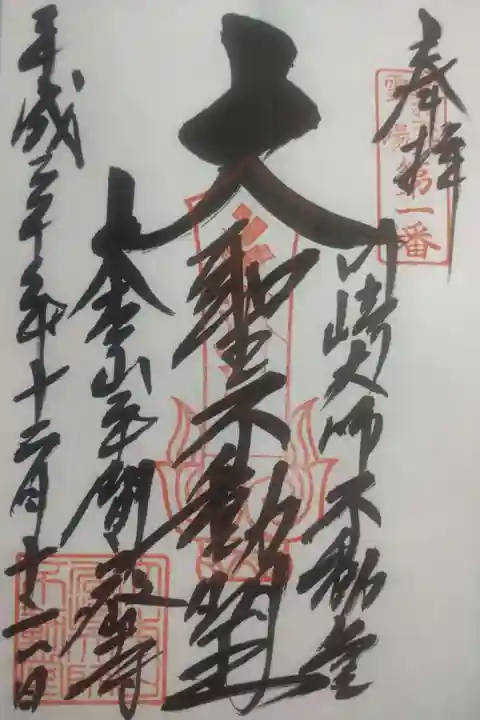 奉拝
第一番
川崎大師不動堂
大聖不動明王
大本山平間寺
平成三十年十二月十二日